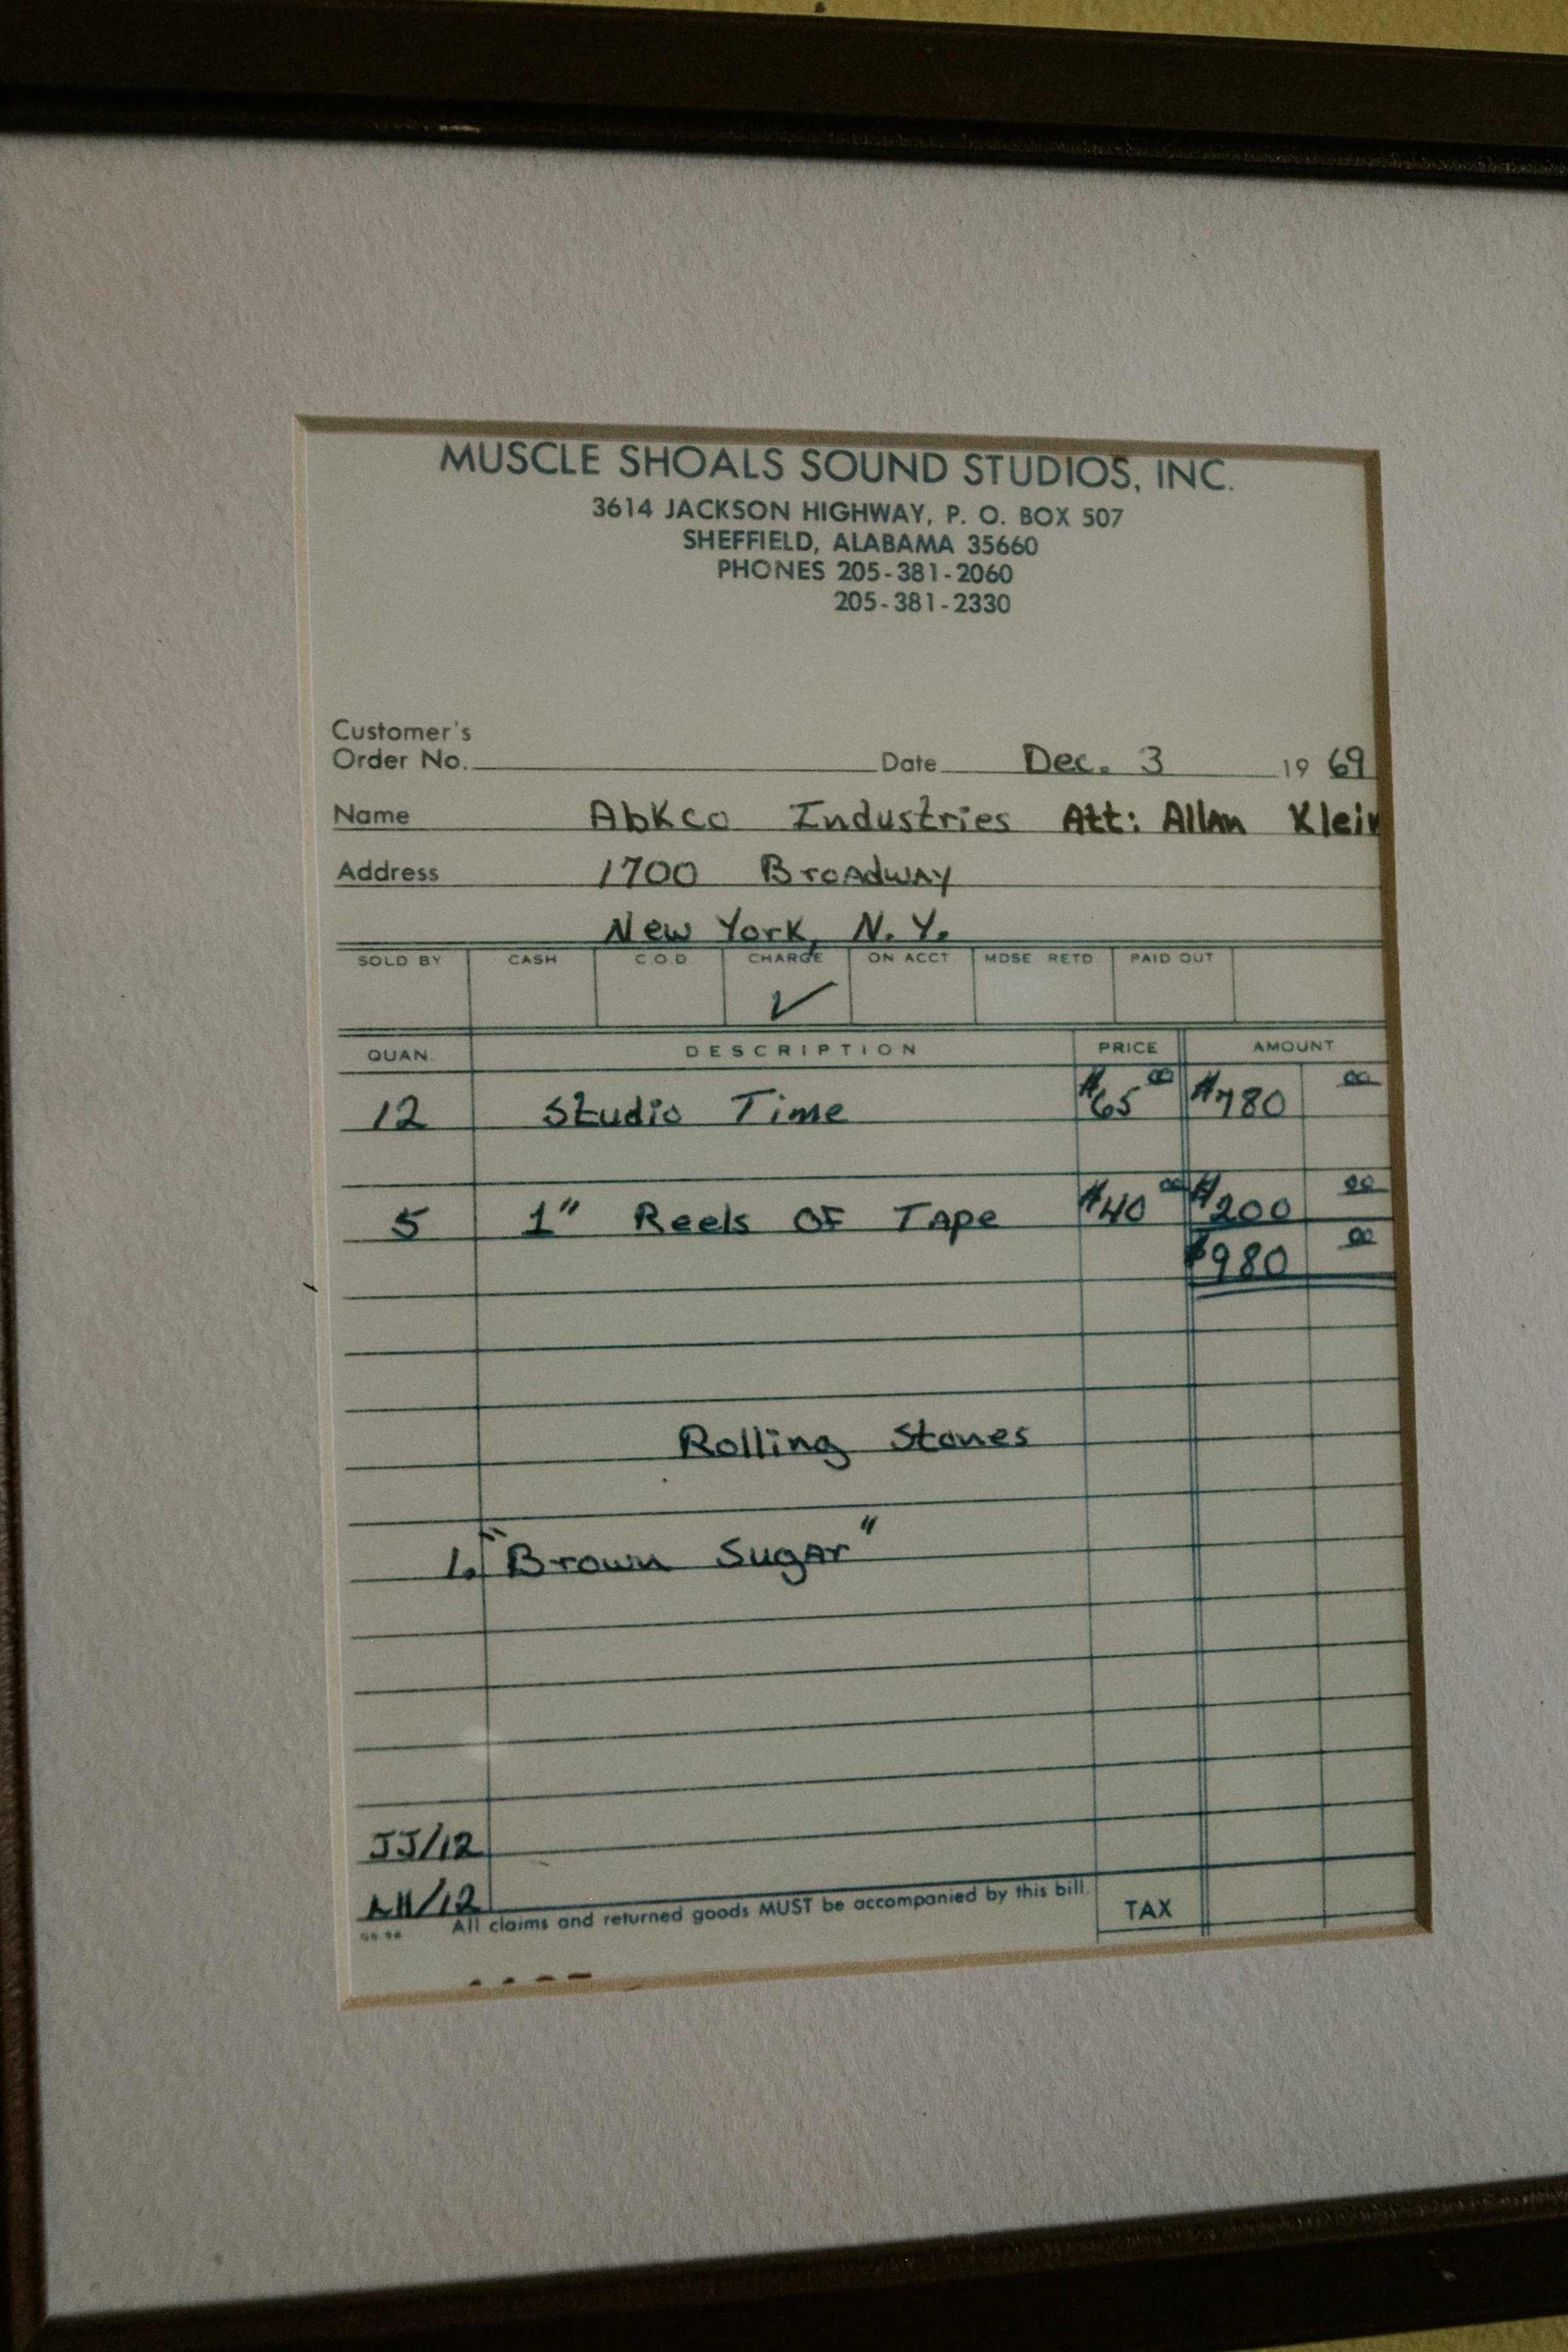 MUSCLE SHOALS SOUND STUDIOS, INC.
3614 JACKSON HIGHWAY, P. O. BOX 507
SHEFFIELD, ALABAMA 35660
PHONES 205-381-2060
205-381-2330
Customer's
Order No. Date Dec. 3 1969
Name AbKco Industries Att: Allan Klein
Address 1700 Broadway
New York, N.Y.
SOLD BY CASH C.O.D CHARGE ON ACCT MDSE RETD PAID OUT
✓
QUAN. DESCRIPTION PRICE AMOUNT
12 Studio Time $65 00 $780 00
5 1" Reels OF Tape $40 00 $200 00
$980 00
Rolling Stones
1. "Brown Sugar"
JJ/12
LH/12
All claims and returned goods MUST be accompanied by this bill. TAX